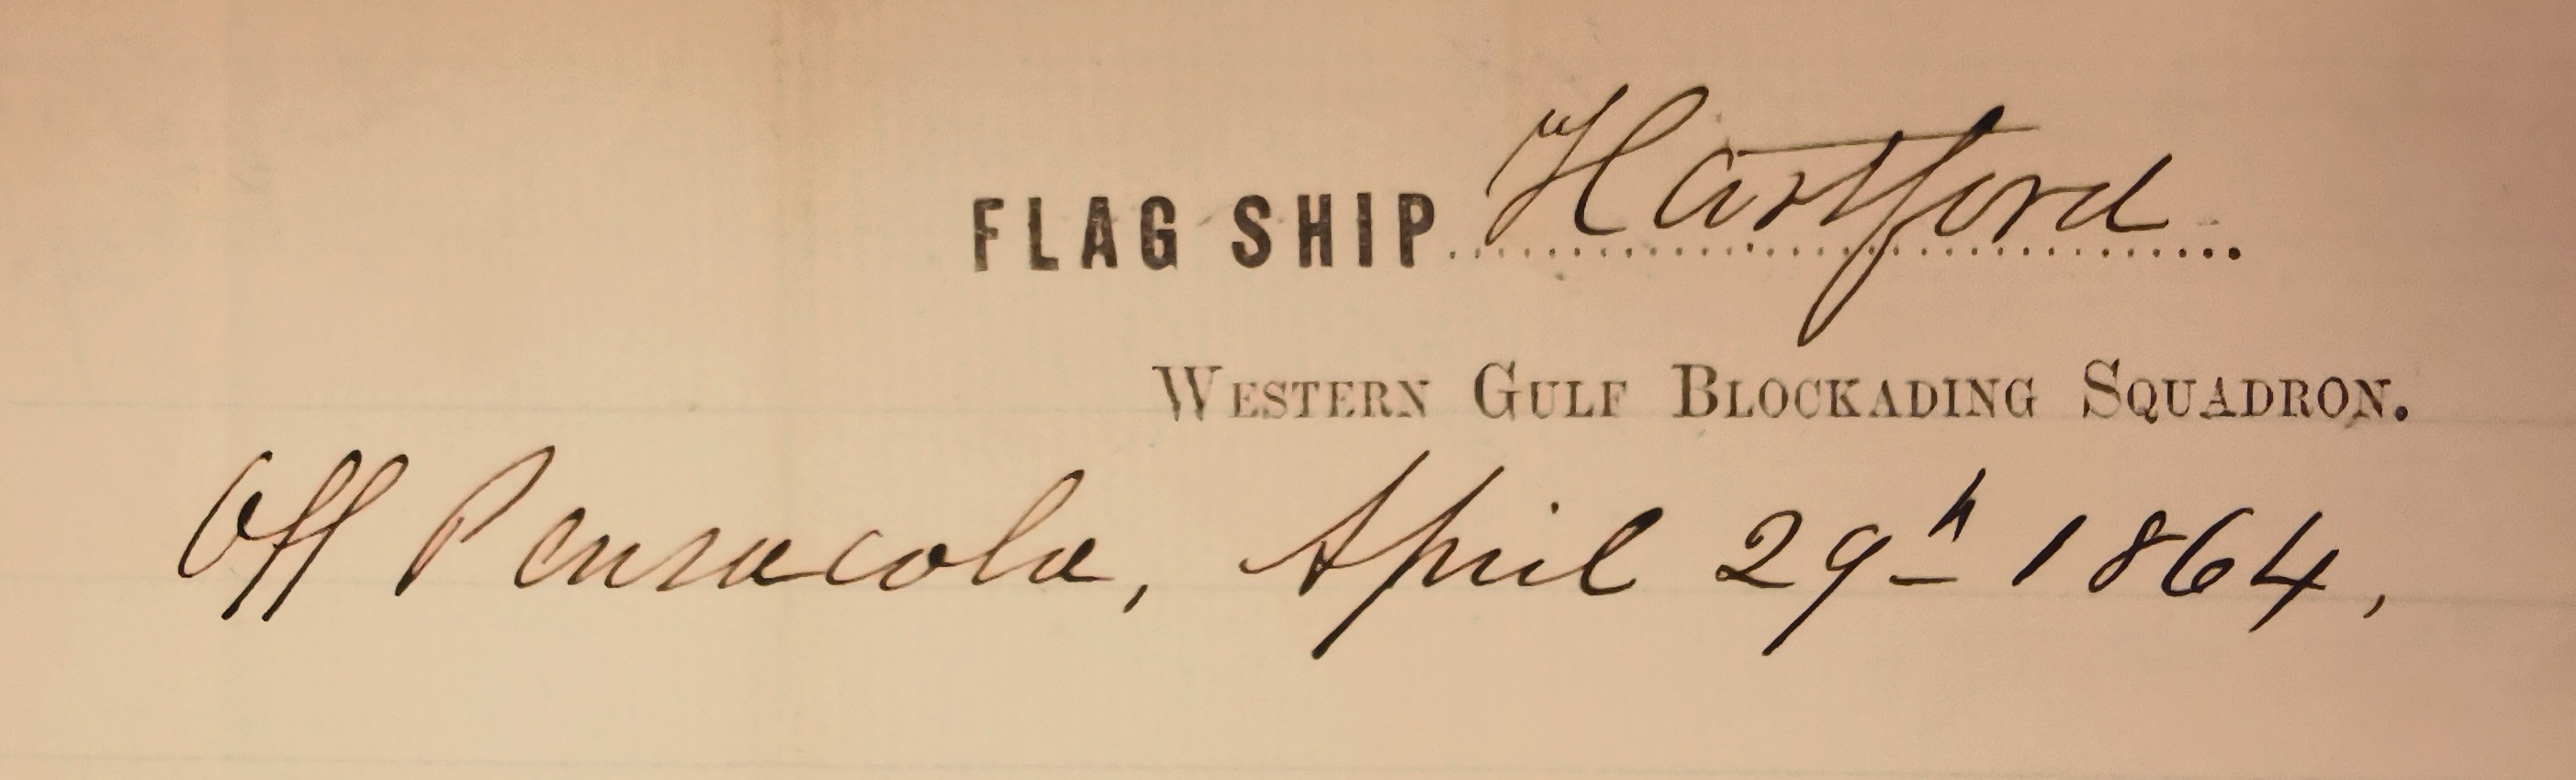 FLAG SHIP Hartford
WESTERN GULF BLOCKADING SQUADRON.
Off Pensacola, April 29th 1864,